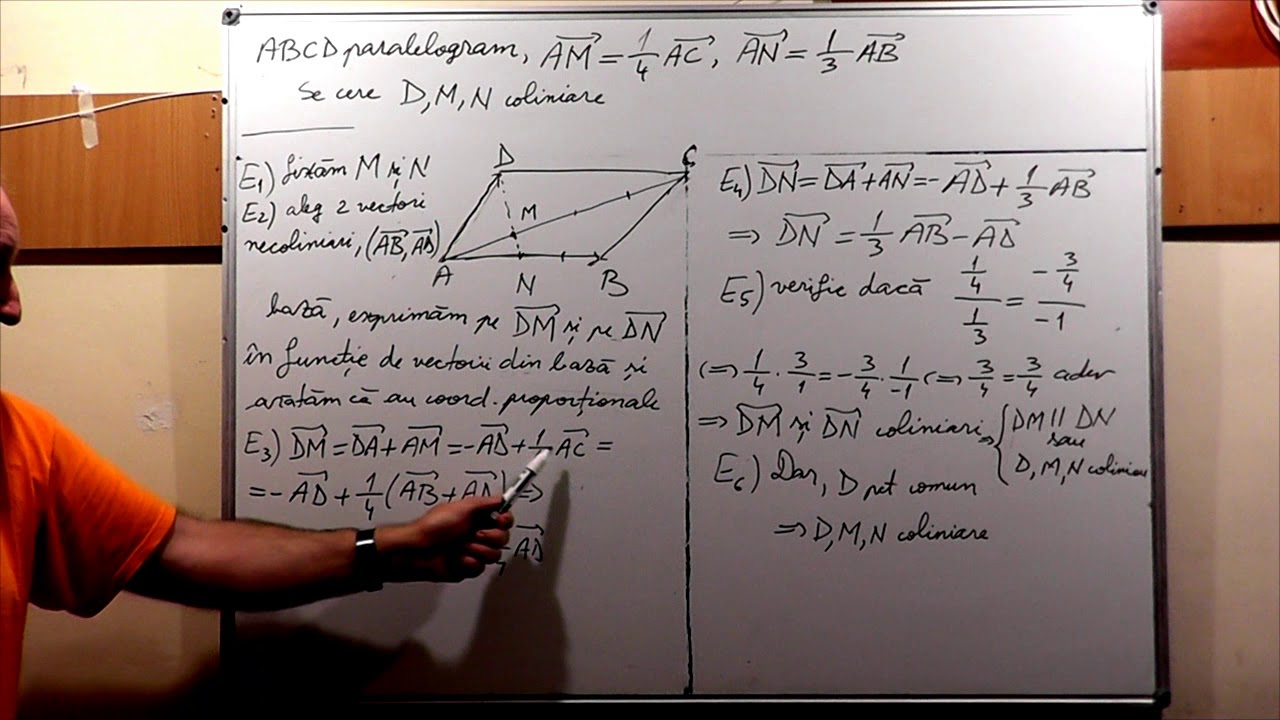 ABCD paralelogram, $\overrightarrow{AM} = \frac{1}{4}\overrightarrow{AC}$, $\overrightarrow{AN} = \frac{1}{3}\overrightarrow{AB}$
Se cere D, M, N coliniare
E₁) fixăm M și N
E₂) aleg 2 vectori
necoliniari, $(\overrightarrow{AB}, \overrightarrow{AD})$
D
C
M
A
N
B
bază, exprimăm pe $\overrightarrow{DM}$ și pe $\overrightarrow{DN}$
în funcție de vectorii din bază și
arătăm că au coord. proporționale
E₃) $\overrightarrow{DM} = \overrightarrow{DA} + \overrightarrow{AM} = -\overrightarrow{AD} + \frac{1}{4}\overrightarrow{AC} =$
$= -\overrightarrow{AD} + \frac{1}{4}(\overrightarrow{AB} + \overrightarrow{AD}) \Rightarrow$
$\overrightarrow{AD}$
E₄) $\overrightarrow{DN} = \overrightarrow{DA} + \overrightarrow{AN} = -\overrightarrow{AD} + \frac{1}{3}\overrightarrow{AB}$
$\Rightarrow \overrightarrow{DN} = \frac{1}{3}\overrightarrow{AB} - \overrightarrow{AD}$
E₅) verific dacă $\frac{\frac{1}{4}}{\frac{1}{3}} = \frac{-\frac{3}{4}}{-1}$
$(\Leftrightarrow \frac{1}{4} \cdot \frac{3}{1} = -\frac{3}{4} \cdot \frac{1}{-1} (\Leftrightarrow \frac{3}{4} = \frac{3}{4}$ adev
$\Rightarrow \overrightarrow{DM}$ și $\overrightarrow{DN}$ coliniari $\Rightarrow$ { DM || DN
sau
D, M, N coliniare
E₆) Dar, D pct comun
$\Rightarrow$ D, M, N coliniare